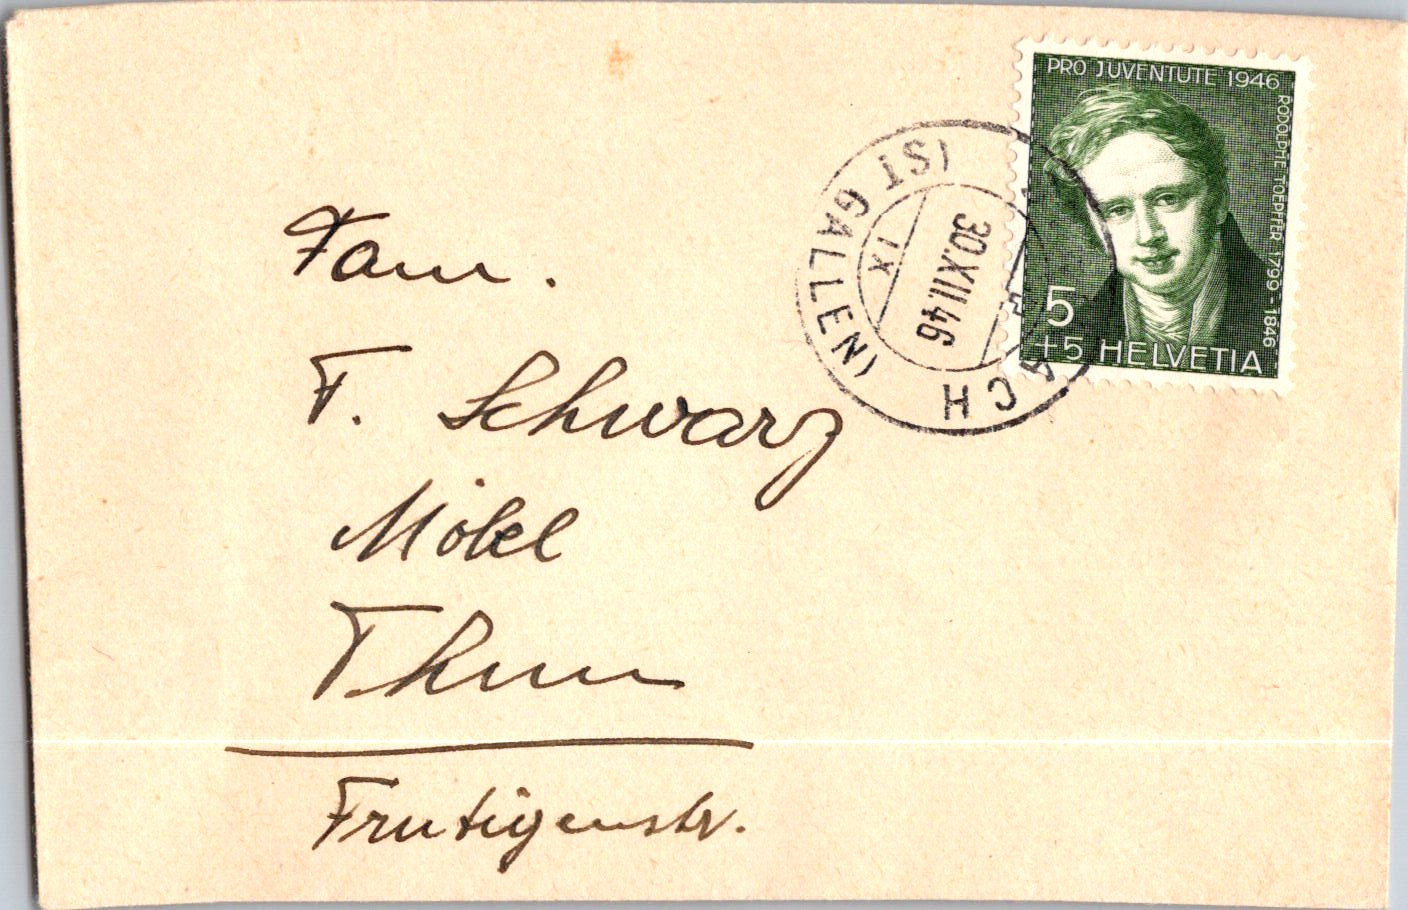 Fam.
F. Schwarz
Möbel
Thun
Frutigenstr.
PRO JUVENTUTE 1946
RODOLPHE TOEPFFER 1799-1846
5
+5 HELVETIA
(ST GALLEN)
IX
30.XII.46